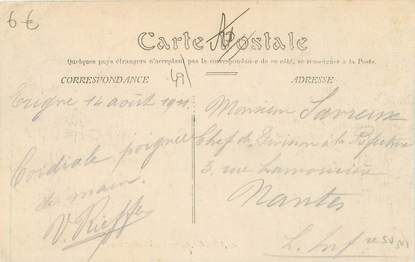 6€
Carte Postale
Quelques pays étrangers n'acceptent pas la correspondance de ce côté, se renseigner à la Poste.
CORRESPONDANCE
ADRESSE
Trigne 14 août 1911
Cordiale poignée
de main.
V. Rieffe
Monsieur Savreux
Chef de Division à la Préfecture
3, rue Lamoricière
Nantes
L. Inf